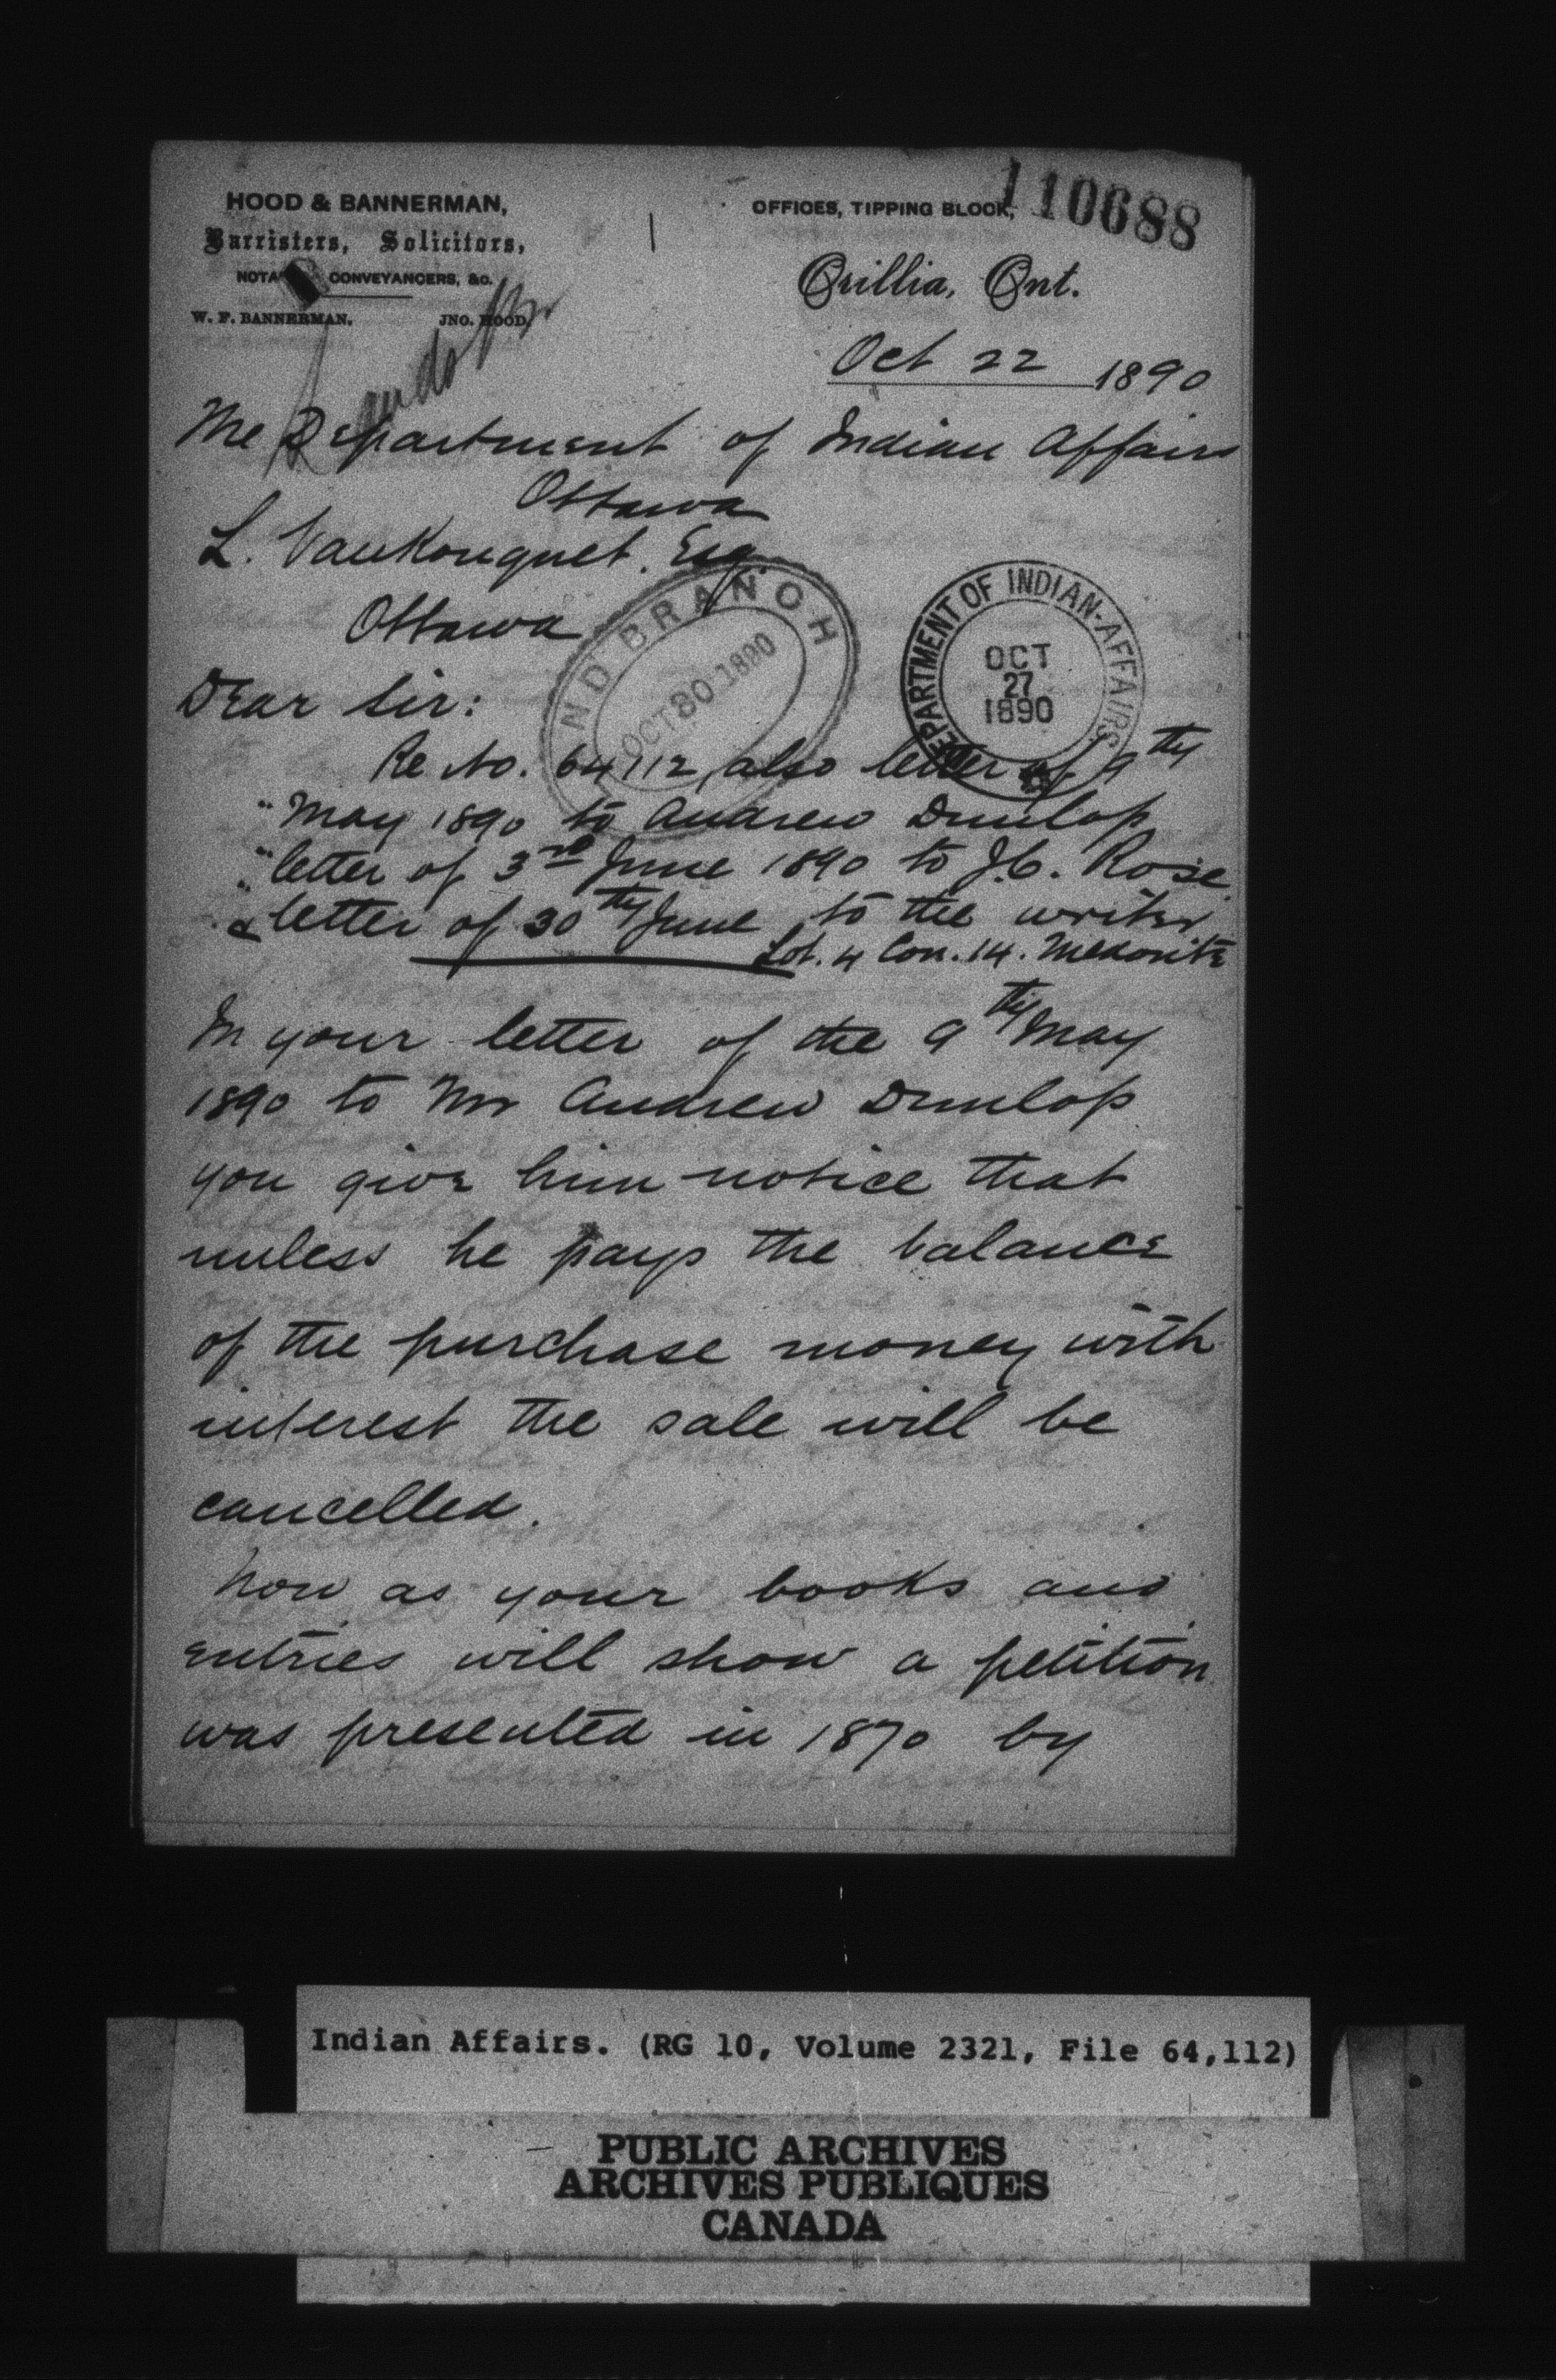 110688
HOOD & BANNERMAN,
Barristers, Solicitors,
CONVEYANCERS, &c.
W. F. BANNERMAN. JNO. HOOD.
OFFICES, TIPPING BLOCK,
Orillia, Ont.
Oct 22 1890
The Department of Indian Affairs
Ottawa
L. VanKoughnet. Esq.
Ottawa
LAND BRANCH
OCT 30 1890
DEPARTMENT OF INDIAN-AFFAIRS
OCT
27
1890
Dear Sir:
Re No. 64112, also letter of 9th
" May 1890 to Andrew Dunlop
" letter of 3rd June 1890 to J.C. Rose
& letter of 30th June to the writer
Lot. 4 Con. 14. Medonte
In your letter of the 9th May
1890 to Mr Andrew Dunlop
you give him notice that
unless he pays the balance
of the purchase money with
interest the sale will be
cancelled.
Now as your books and
entries will show a petition
was presented in 1870 by
Indian Affairs. (RG 10, Volume 2321, File 64,112)
PUBLIC ARCHIVES
ARCHIVES PUBLIQUES
CANADA